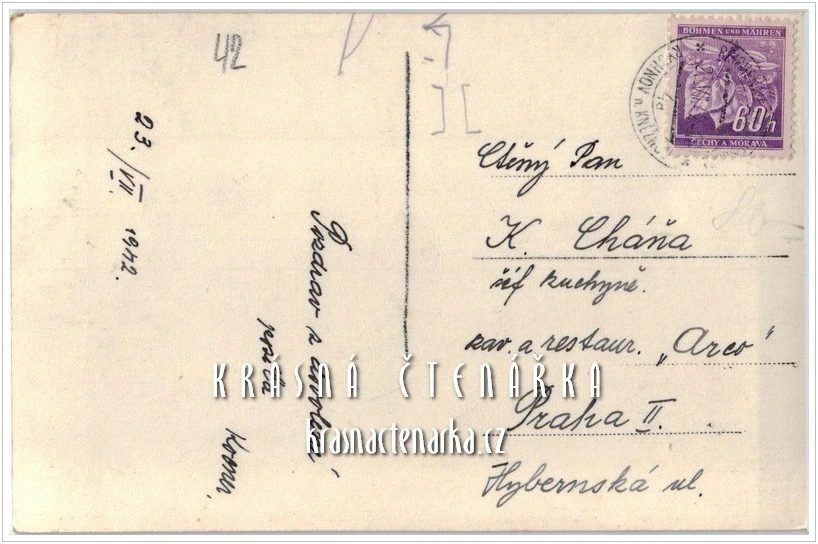 42
BÖHMEN UND MÄHREN
60h
ČECHY A MORAVA
RYCHNOV n. KNĚŽNOU
23./VII. 1942.
Pozdrav z dovolené
Ctěný Pan
K. Cháňa
šéf kuchyně.
kav. a restaur. „Arco"
Praha II.
Hybernská ul.
KRÁSNÁ ČTENÁŘKA
krasnactenarka.cz